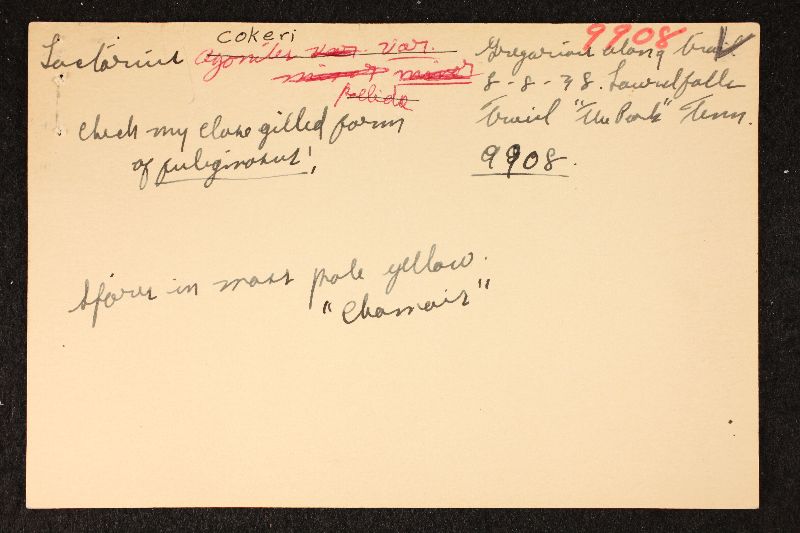 cokeri
Lactarius agonites var. var.
minor minor
pallida
check my close gilled form
of fuliginosus!
9908
Gregarious along trail.
8-8-38. Laurelfalls
Trail "The Park" Tenn.
9908.
Spores in mass pale yellow.
"Chamois"